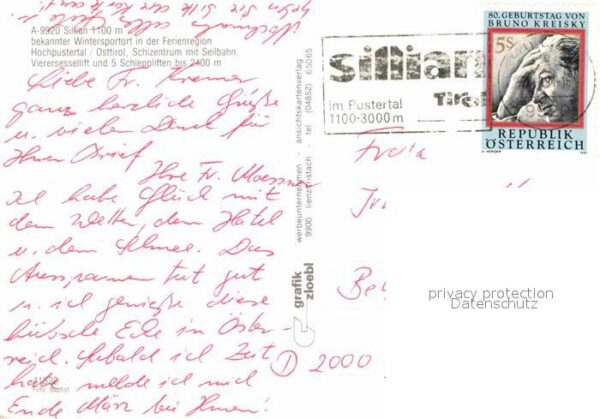 A-9920 Sillian 1100 m
bekannter Wintersportort in der Ferienregion
Hochpustertal / Osttirol, Schizentrum mit Seilbahn,
Vierersessellift und 5 Schleppliften bis 2400 m
Liebe Fr. Kremer
ganz herzliche Grüße
u. vielen Dank für
Ihren Brief
Ihre Fr. Moessner
Ich habe Glück mit
dem Wetter, dem Hotel
u. dem Schnee. Das
Ausspannen tut gut
u. ich genieße diese
hübsche Ecke in Öster-
reich. Sobald ich Zeit
habe melde ich mich
Ende März bei Ihnen!
Foto: Baptist
werbeunternehmen · ansichtskartenverlag
9900 lienz/tristach · tel. (04852) 65065
grafik
zloebl
sillian
im Pustertal
Tirol
1100-3000 m
80. GEBURTSTAG VON
BRUNO KREISKY
5S
REPUBLIK
ÖSTERREICH
1991
Frau
D 2000
privacy protection
Datenschutz